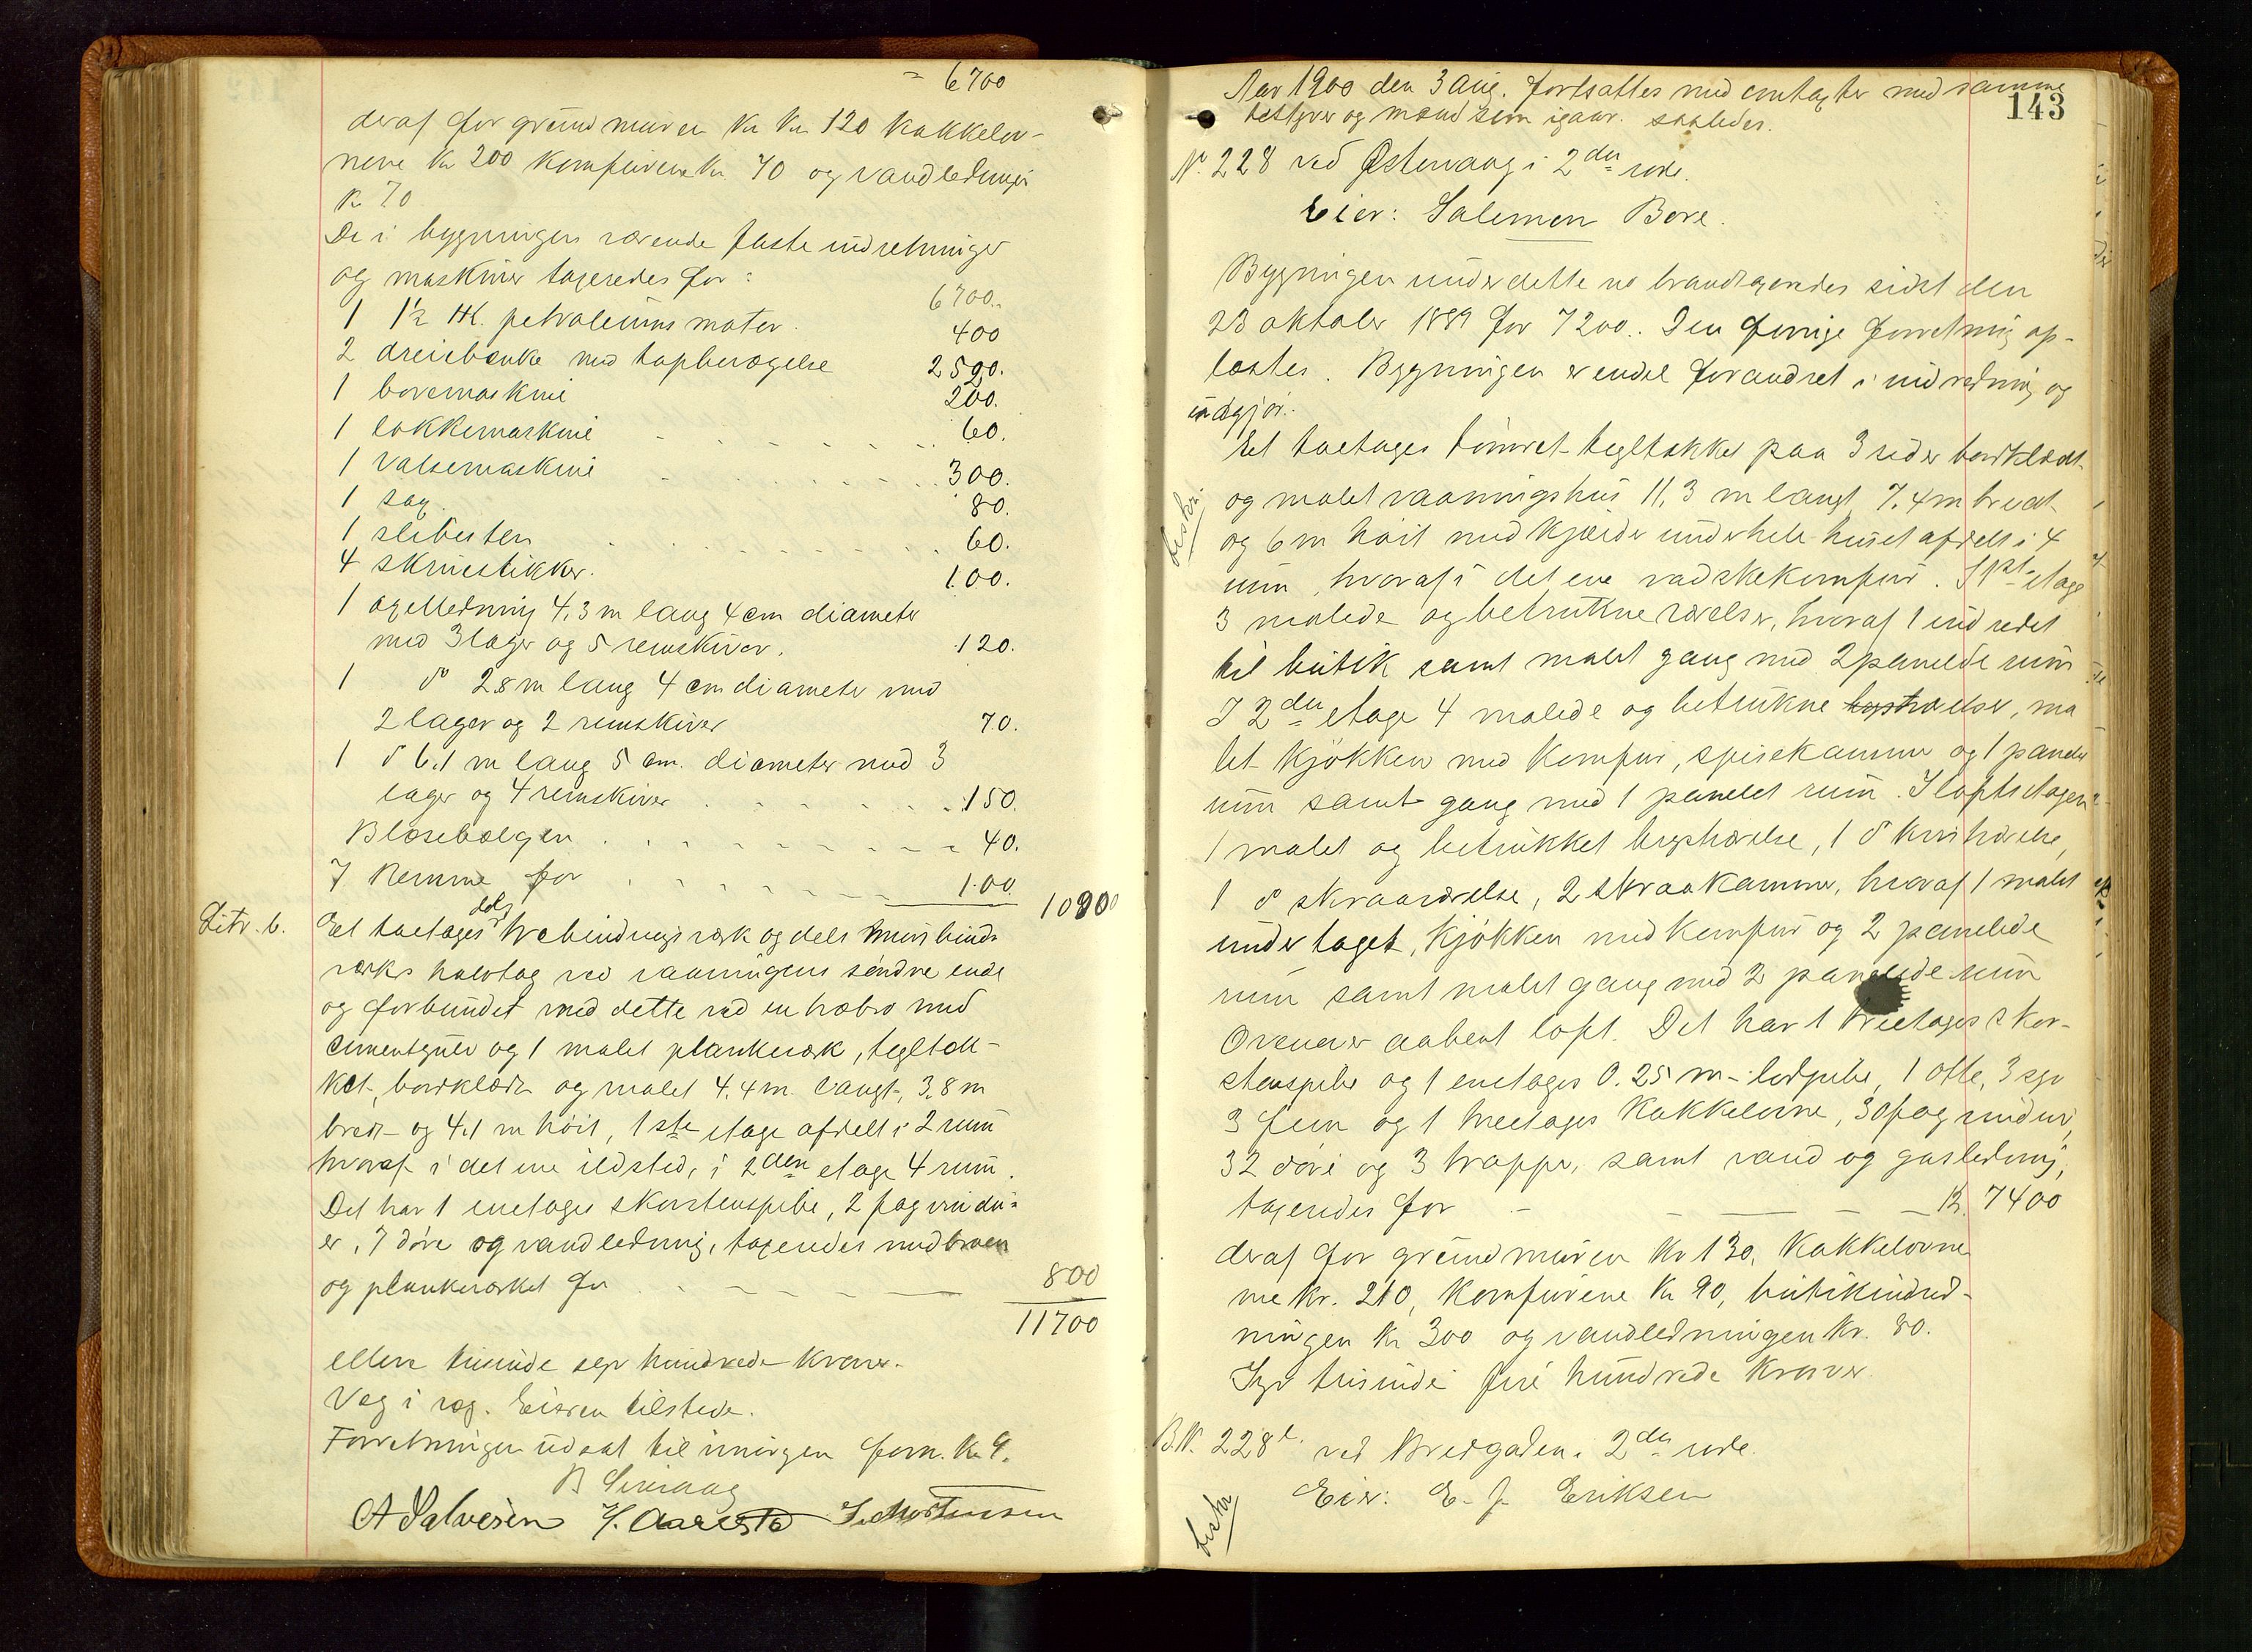 = 6700
deraf for grundmuren Kr 120 Kakkelov-
nene Kr 200 Komfurene Kr. 70 og vandledningen
Kr 70
De i bygningen værende faste indretninger
og maskiner taxeredes for:
6700.-
1 1½ HK. petroleumsmotor. 400
2 dreiebænke med topbevægelse 2520.
1 boremaskine 200.
1 lokkemaskine 60.
1 Valsemaskine 300.
1 sag 80.
1 slibesten 60.
4 skruestikker. 100.
1 axelledning 4.3 m lang 4 cm diameter
med 3 lager og 5 remskiver. 120.
1 do 2.8 m lang 4 cm diameter med
2 lager og 2 remskiver 70.
1 do 6.1 m lang 5 cm. diameter med 3
lager og 4 remskiver 150.
Blæsebælgen 40.
7 Remme for 100
10900
Litr. b. Et toetages dels træbindingsværk og dels mursbinds
værks halvtag ved vaaningens søndre ende
og forbundet med dette ved en træbro med
cementgulv og 1 malet plankeværk, tegltæk-
ket, bordklædt og malet 4.4 m. langt, 3.8 m
bredt og 4.1 m høit, 1ste etage afdelt i 2 rum
hvoraf i det ene ildsted, i 2den etage 4 rum.
Det har 1 enetages skorstenspibe, 2 fag vindu-
er, 7 døre og vandledning, taxeredes med broen
og plankeværket for 800
11700
elleve tusinde syv hundrede kroner.
Veg i veg. Eieren tilstede.
Forretningen udsat til imorgen form. Kl 9.
A Salvesen H. Aarestad J. Mortensen
143
Aar 1900 den 3 Aug. fortsattes med omtaxter med samme
bestyrer og mænd som igaar. saaledes.
No. 228 ved Østervaag i 2den rode.
Eier: Salomon Bore.
Bygningen under dette no brandtaxeredes sidst den
23 oktober 1889 for 7200. Den forrige forretning op-
læstes. Bygningen er endel forandret i indredning og
udgjør:
Et toetages tømret tegltækket paa 3 sider bordklædt
og malet vaaningshus 11.3 m langt 7.4 m bredt
og 6 m høit med kjælder under hele huset afdelt i 4
rum, hvoraf i det ene vaskekomfur. I 1ste etage
3 malede og betrukne værelser, hvoraf 1 indredet
til butik samt malet gang med 2 panelede rum
I 2den etage 4 malede og betrukne værelser, ma
let kjøkken med komfur, spisekammer og 1 panelet
rum samt gang med 1 panelet rum. I loftsetagen
1 malet og betrukket kvistværelse, 1 do kvistværelse,
1 do skraaværelse, 2 skraakammer, hvoraf 1 malet
under taget, kjøkken med komfur og 2 panelede
rum samt malet gang med 2 panelede rum
Ovenover aabent loft. Det har 1 treetages skor-
stenspibe og 1 enetages 0.25 m- ledpibe, 1 otte, 3 syv
3 fem og 1 treetages Kakkelovne, 30 fag vinduer,
32 døre og 3 trapper, samt vand og gasledning,
taxeredes for Kr. 7400
deraf for grundmuren Kr 130, Kakkelovne
ne kr. 210, komfurene Kr 90, butikindred-
ningen Kr 300 og vandledningen Kr. 80.
Syv tusinde fire hundrede Kroner.
B.N. 228 b ved Bredgaden i 2den rode.
Eier: E. J. Eriksen